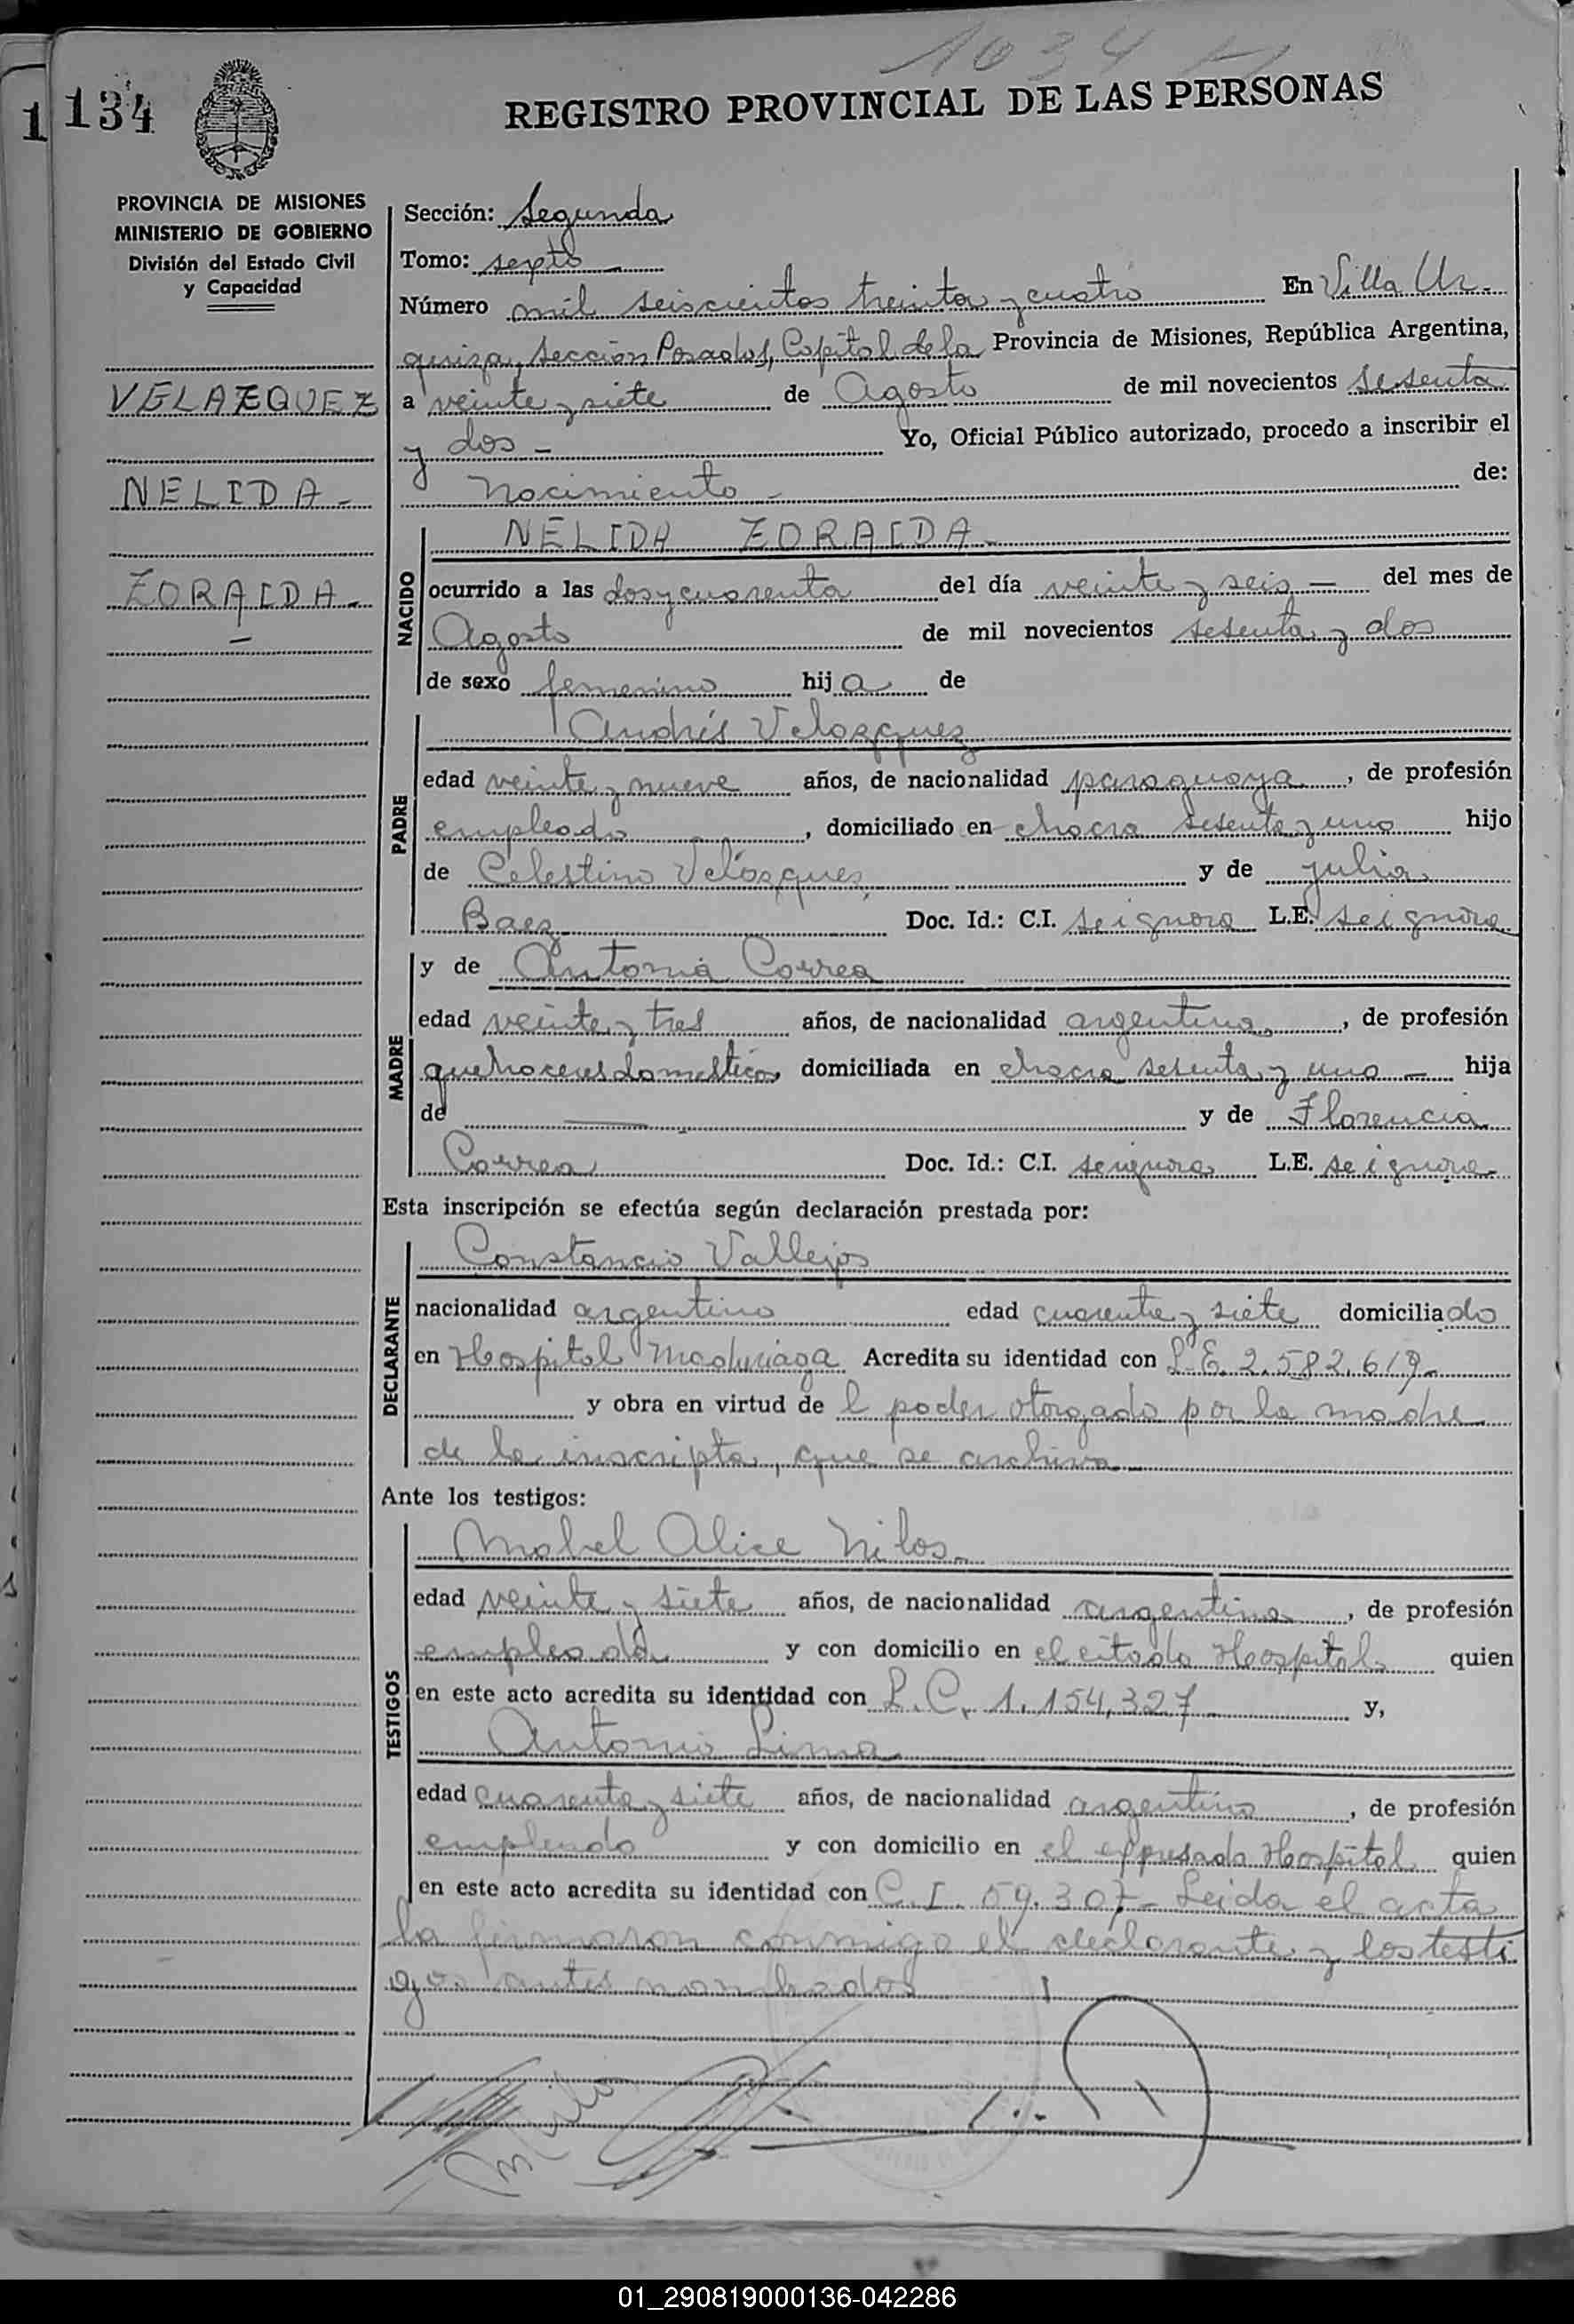 1634
1 134
REGISTRO PROVINCIAL DE LAS PERSONAS
PROVINCIA DE MISIONES
MINISTERIO DE GOBIERNO
División del Estado Civil
y Capacidad
VELAZQUEZ
NELIDA -
ZORAIDA -
Sección: Segunda
Tomo: sexto
Número mil seiscientos treinta y cuatro En Villa Ur-
quiza, Sección Posadas, Capital de la Provincia de Misiones, República Argentina,
a veinte y siete de Agosto de mil novecientos sesenta
y dos - Yo, Oficial Público autorizado, procedo a inscribir el
Nacimiento - de:
NACIDO
NELIDA ZORAIDA -
ocurrido a las dos y cuarenta del día veinte y seis - del mes de
Agosto de mil novecientos sesenta y dos
de sexo femenino hija de
PADRE
Andrés Velazquez
edad veinte y nueve años, de nacionalidad paraguaya, de profesión
empleado, domiciliado en chacra sesenta y uno hijo
de Celestino Velázquez y de Julia
Baez Doc. Id.: C.I. se ignora L.E. se ignora
MADRE
y de Antonia Correa
edad veinte y tres años, de nacionalidad argentina, de profesión
quehaceres domésticos domiciliada en chacra sesenta y uno - hija
de — y de Florencia
Correa Doc. Id.: C.I. se ignora L.E. se ignora -
Esta inscripción se efectúa según declaración prestada por:
DECLARANTE
Constancio Vallejos
nacionalidad argentino edad cuarenta y siete domiciliado
en Hospital Madariaga Acredita su identidad con L.E. 2.582.619 -
y obra en virtud del poder otorgado por la madre
de la inscripta, que se archiva -
Ante los testigos:
TESTIGOS
Mabel Alice Nilos -
edad veinte y siete años, de nacionalidad argentina, de profesión
empleada y con domicilio en el citado Hospital quien
en este acto acredita su identidad con L.C. 1.154.327 - y,
Antonio Lima
edad cuarenta y siete años, de nacionalidad argentino, de profesión
empleado y con domicilio en el expresado Hospital quien
en este acto acredita su identidad con C.I. 59.307 - Leida el acta
la firmaron conmigo el declarante y los testi
gos antes nombrados
01_290819000136-042286